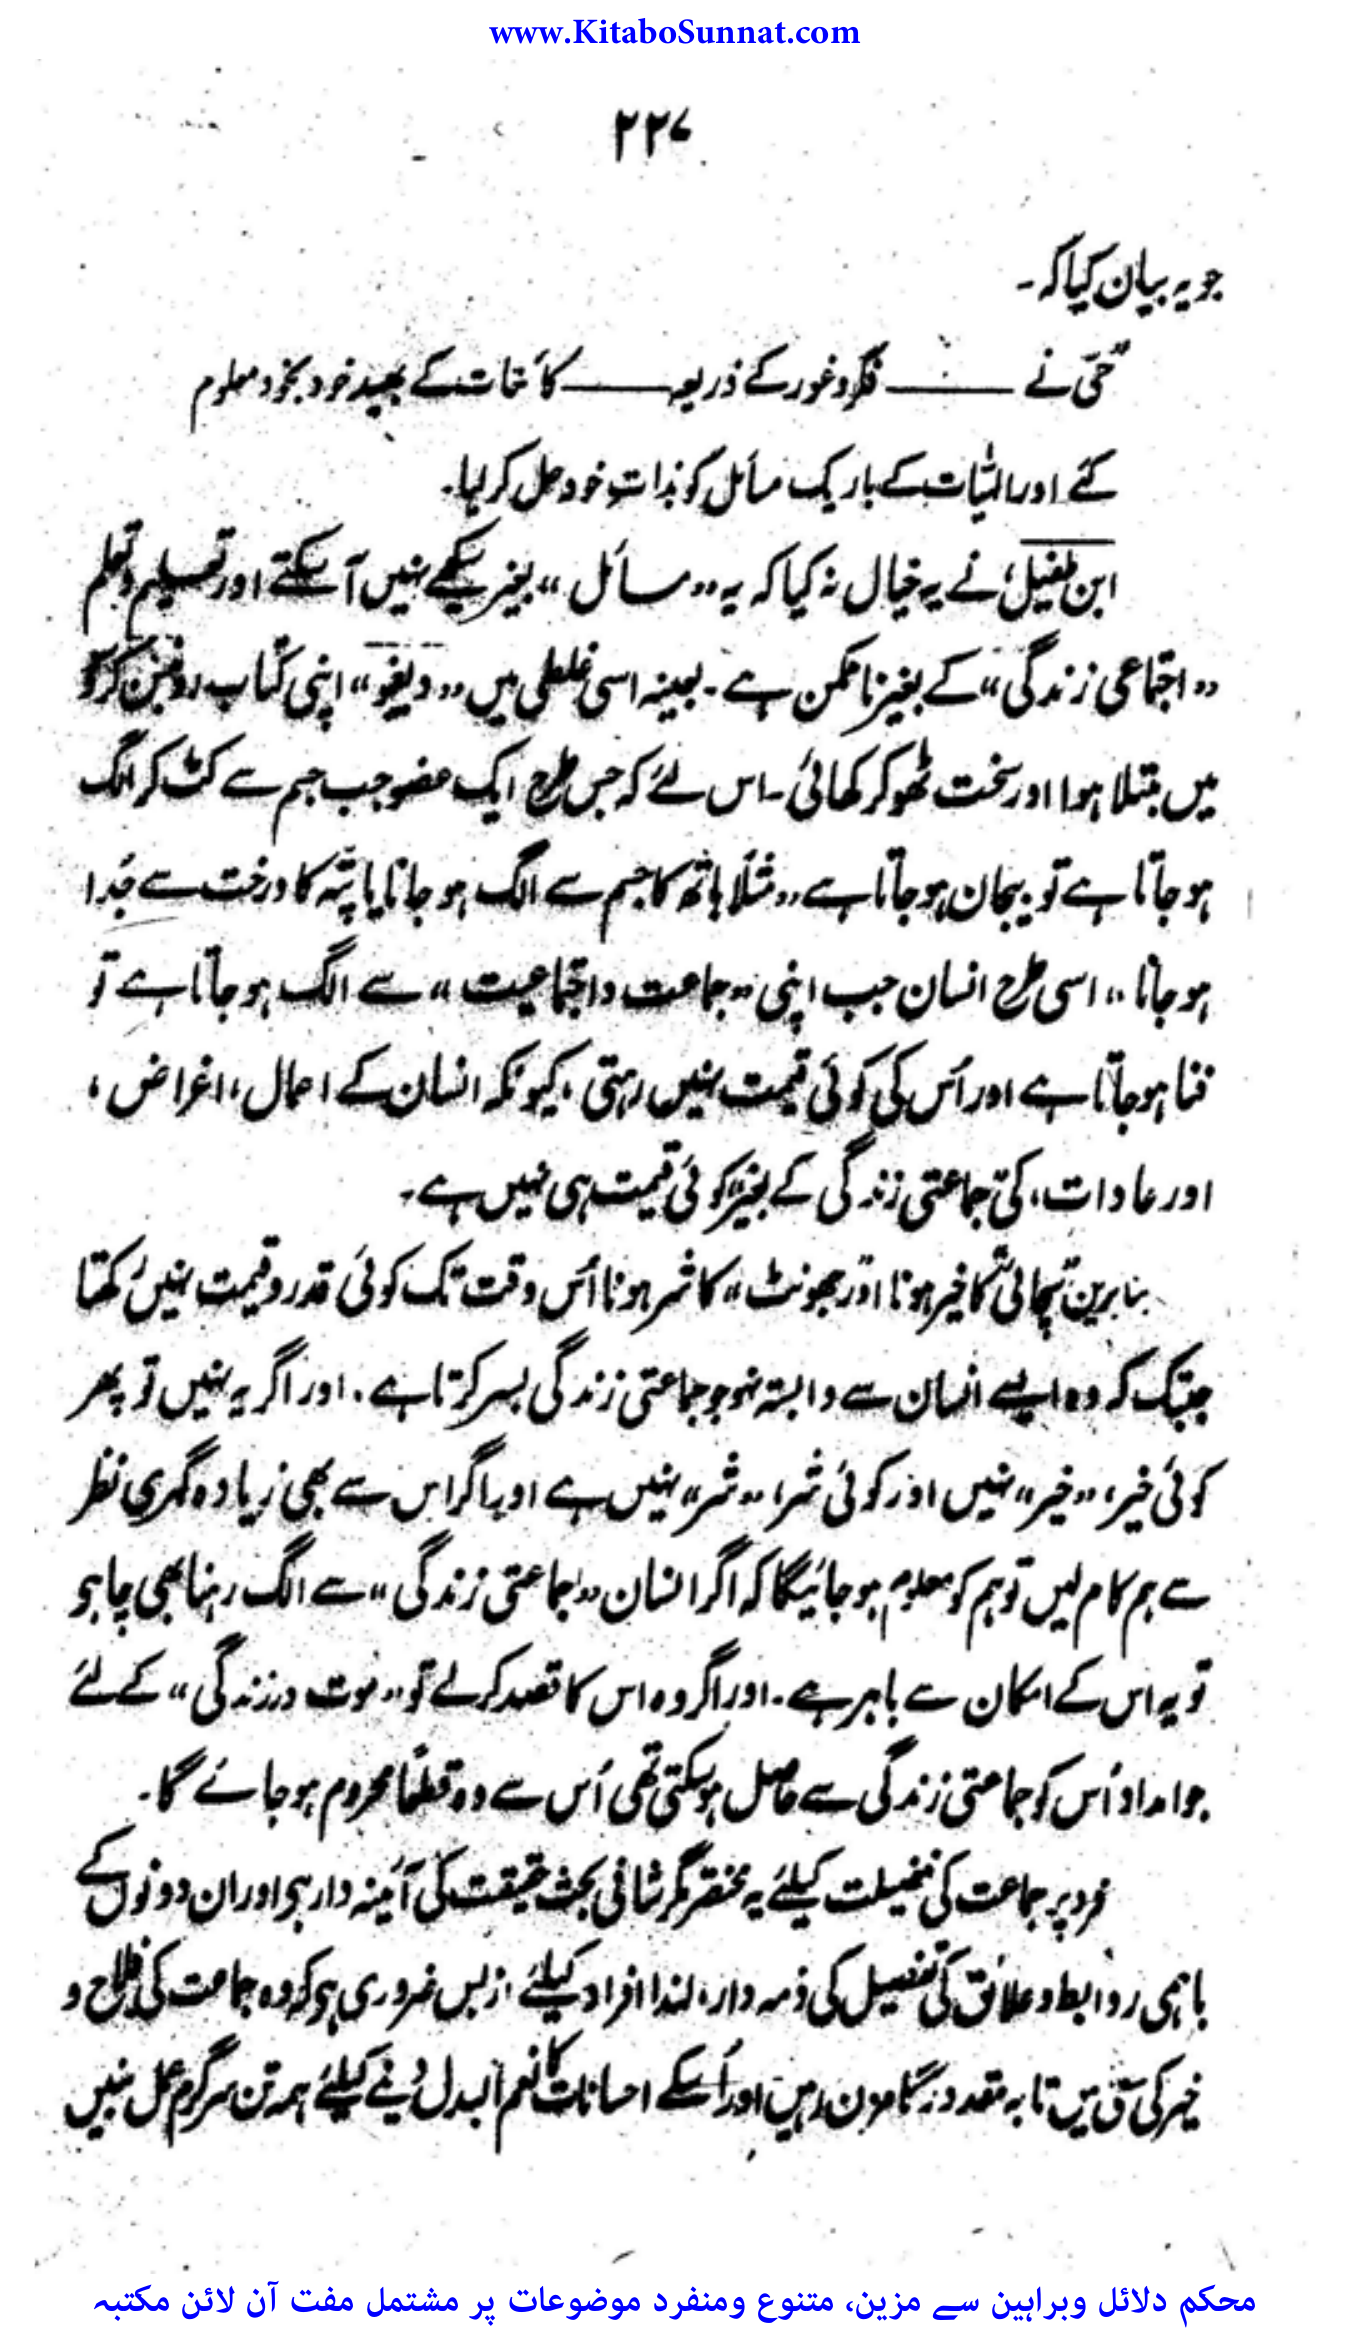 www.KitaboSunnat.com
۲۲۷
جو یہ بیان کیا کہ۔
”حَی نے ——— فکر و غور کے ذریعہ ——— کائنات کے بھید خود بخود معلوم
کئے اور الٰہیات کے باریک مسائل کو بذات خود حل کر لیا۔
ابن طفیل نے یہ خیال نہ کیا کہ یہ ”مسائل“ بغیر سیکھے نہیں آسکتے اور تسلیم و تعلم
”اجتماعی زندگی“ کے بغیر ناممکن ہے۔ بعینہ اسی غلطی میں ”دیفو“ اپنی کتاب روبنسن کروسو
میں مبتلا ہوا اور سخت ٹھوکر کھائی۔ اس لئے کہ جس طرح ایک عضو جب جسم سے کٹ کر الگ
ہو جاتا ہے تو بیجان ہو جاتا ہے ”مثلاً ہاتھ کا جسم سے الگ ہو جانا یا پتہ کا درخت سے جُدا
ہو جانا“ اسی طرح انسان جب اپنی ”جماعت و اجتماعیت“ سے الگ ہو جاتا ہے تو
فنا ہو جاتا ہے اور اُس کی کوئی قیمت نہیں رہتی، کیونکہ انسان کے اعمال، اغراض،
اور عادات، کی جماعتی زندگی کے بغیر کوئی قیمت ہی نہیں ہے۔
بنا بریں ”سچائی“ کا خیر ہونا اور ”جھونٹ“ کا شر ہونا اُس وقت تک کوئی قدر و قیمت نہیں رکھتا
جبتک کہ وہ ایسے انسان سے وابستہ نہو جو جماعتی زندگی بسر کرتا ہے۔ اور اگر یہ نہیں تو پھر
کوئی خیر، ”خیر“ نہیں اور کوئی شر، ”شر“ نہیں ہے اور اگر اس سے بھی زیادہ گہری نظر
سے ہم کام لیں تو ہم کو معلوم ہو جائیگا کہ اگر انسان ”جماعتی زندگی“ سے الگ رہنا بھی چاہو
تو یہ اس کے امکان سے باہر ہے۔ اور اگر وہ اس کا قصد کرلے تو ”موت و زندگی“ کے لئے
جو امداد اُس کو جماعتی زندگی سے حاصل ہو سکتی تھی اُس سے وہ قطعاً محروم ہو جائے گا۔
فرد پر جماعت کی فضیلت کیلئے یہ مختصر مگر شافی بحث حقیقت کی آئینہ دار ہو اور ان دونوں کے
باہمی روابط و علائق کی تفصیل کی ذمہ دار، لہٰذا افراد کیلئے ازبس ضروری ہو کہ وہ جماعت کی فلاح و
خیر کی ترقی میں تا بہ مقدور گامزن رہیں اور اُسکے احسانات کا نعم البدل دینے کیلئے ہمہ تن سرگرم عمل بنیں
محکم دلائل وبراہین سے مزین، متنوع ومنفرد موضوعات پر مشتمل مفت آن لائن مکتبہ